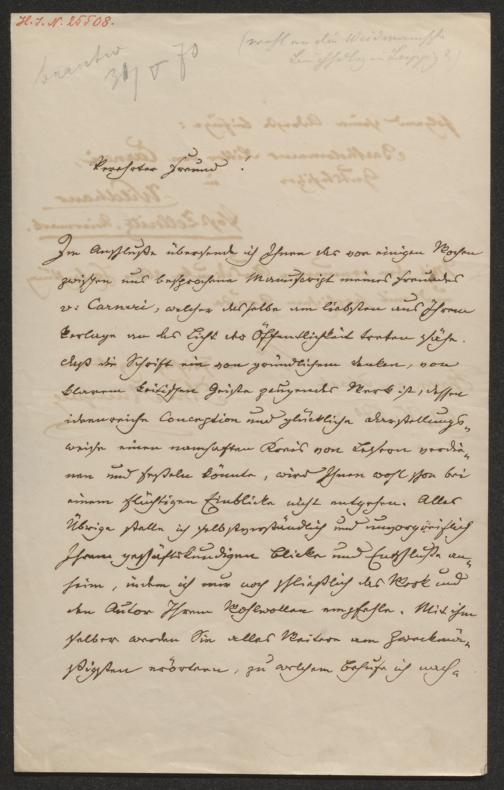 H. I. N. 25508.
(wohl an die Weidmannsche
Buchhdlg in Leipzig?)
31/V 70
Verehrter Freund!
Im Anschluße übersende ich Ihnen das vor einigen Wochen
zwischen uns besprochene Manuscript meines Freundes
v: Carneri, welcher dasselbe am liebsten aus Ihrem
Verlage an das Licht der Öffentlichkeit treten sähe.
Daß die Schrift ein von gründlichem Denken, von
klarem kritischen Geiste zeugendes Werk ist, dessen
ideenreiche Conception und glückliche Darstellungs-
weise einen namhaften Kreis von Lesern verdie-
nen und fesseln könnte, wird Ihnen wohl schon bei
einem flüchtigen Einblicke nicht entgehen. Alles
Übrige stelle ich selbstverständlich und unvorgreiflich
Ihrem geschäftskundigen Blicke und Entschluße an-
heim, indem ich nur noch schließlich das Werk und
den Autor Ihrem Wohlwollen empfehle. Mit ihm
selber werden Sie alles Weitere am Zweckmä-
ßigsten erörtern, zu welchem Behufe ich nach-